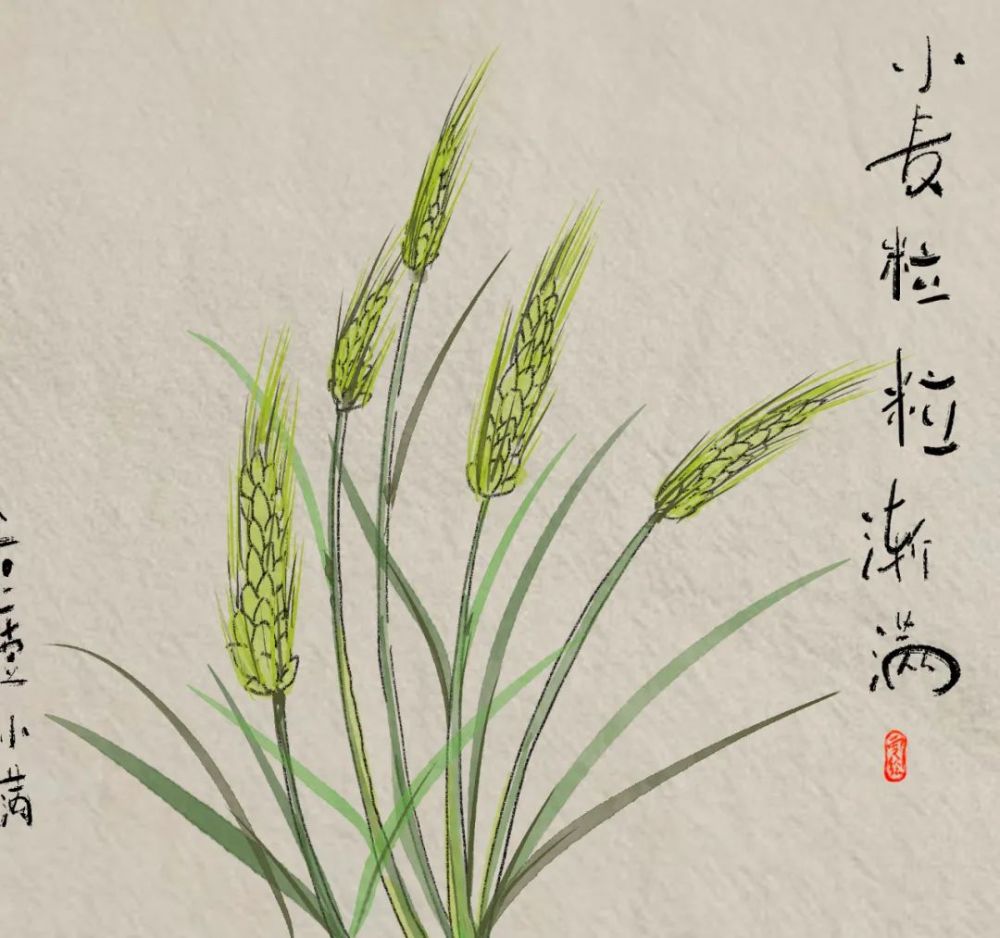 小麦粒粒渐满
二壹小满